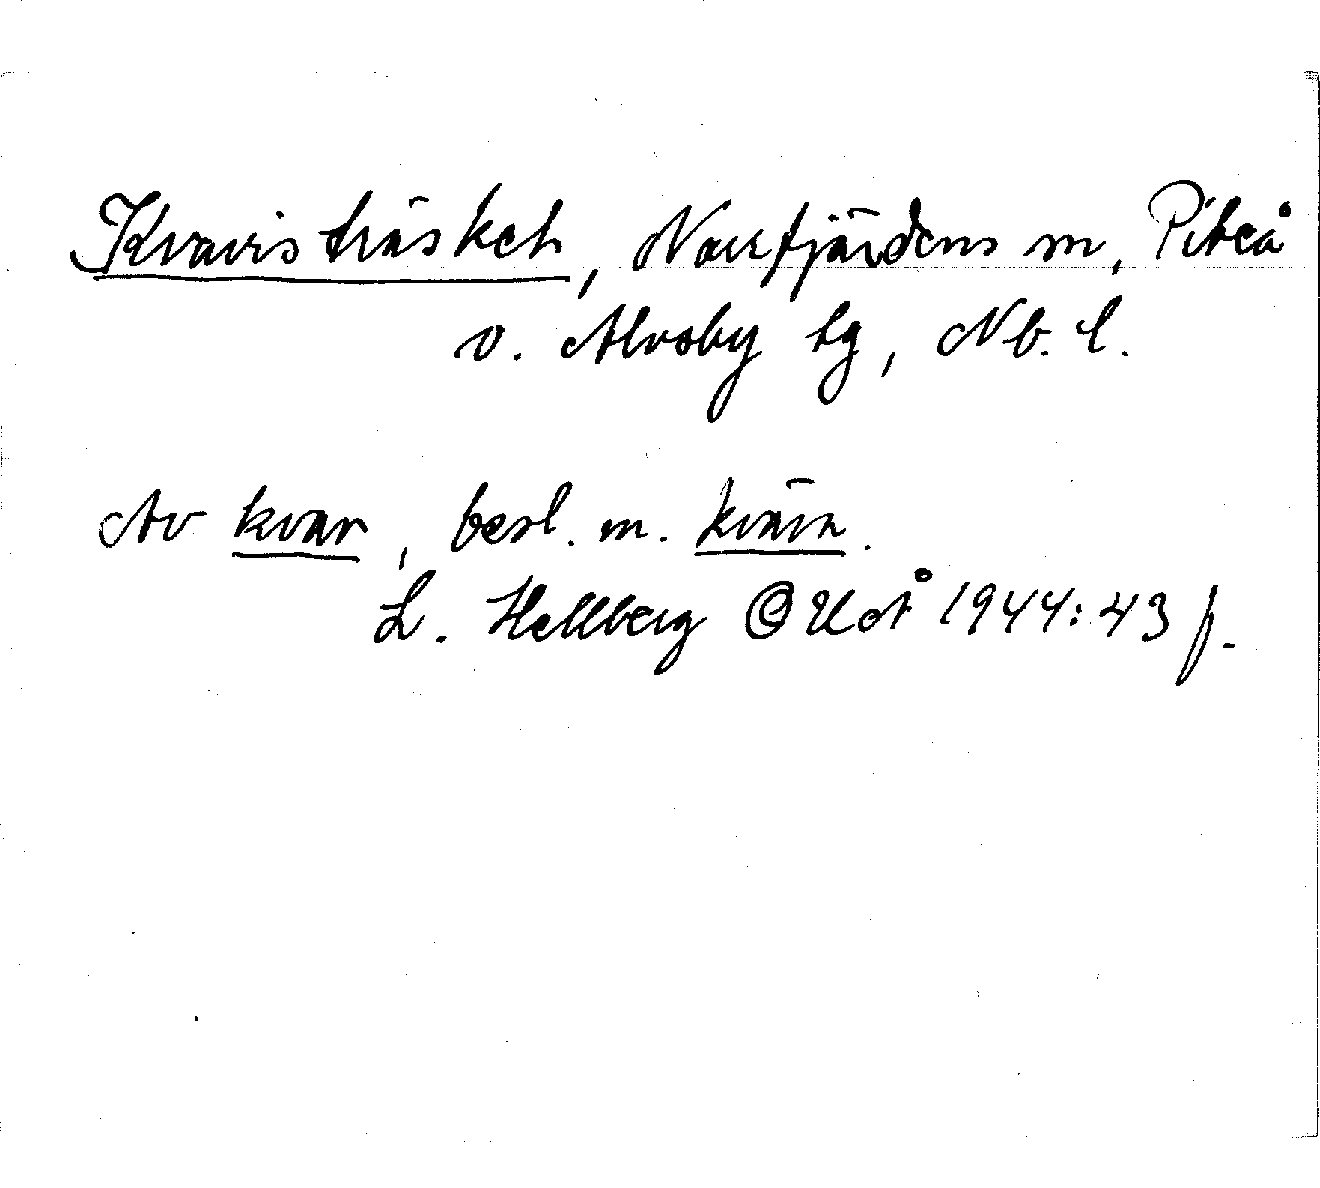 Kvaristräsket, Norrfjärdens sn, Piteå
o. Älvsby tg, Nb. l.
Av kvar, besl. m. kvarn.
L. Hellberg @ UUÅ 1944: 43 f.